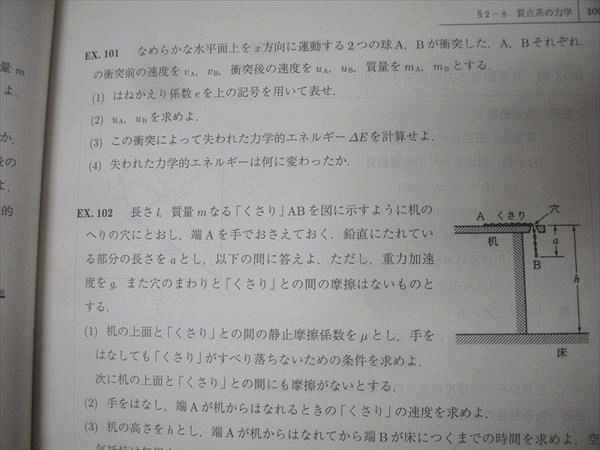 §2−8 質点系の力学
EX. 101 なめらかな水平面上をx方向に運動する2つの球A，Bが衝突した．A，Bそれぞれ
の衝突前の速度をvA，vB，衝突後の速度をuA，uB，質量をmA，mBとする．
(1) はねかえり係数eを上の記号を用いて表せ．
(2) uA，uBを求めよ．
(3) この衝突によって失われた力学的エネルギーΔEを計算せよ．
(4) 失われた力学的エネルギーは何に変わったか．
EX. 102 長さl，質量mなる「くさり」ABを図に示すように机の
へりの穴にとおし，端Aを手でおさえておく．鉛直にたれてい
る部分の長さをaとし，以下の問に答えよ．ただし，重力加速
度をg，また穴のまわりと「くさり」との間の摩擦はないものと
する．
(1) 机の上面と「くさり」との間の静止摩擦係数をμとし，手を
はなしても「くさり」がすべり落ちないための条件を求めよ．
次に机の上面と「くさり」との間にも摩擦がないとする．
(2) 手をはなし，端Aが机からはなれるときの「くさり」の速度を求めよ．
(3) 机の高さをhとし，端Aが机からはなれてから端Bが床につくまでの時間を求めよ．空
A くさり 穴
机
a
B
h
床
量m
よ．
か．
後の
よ．
的